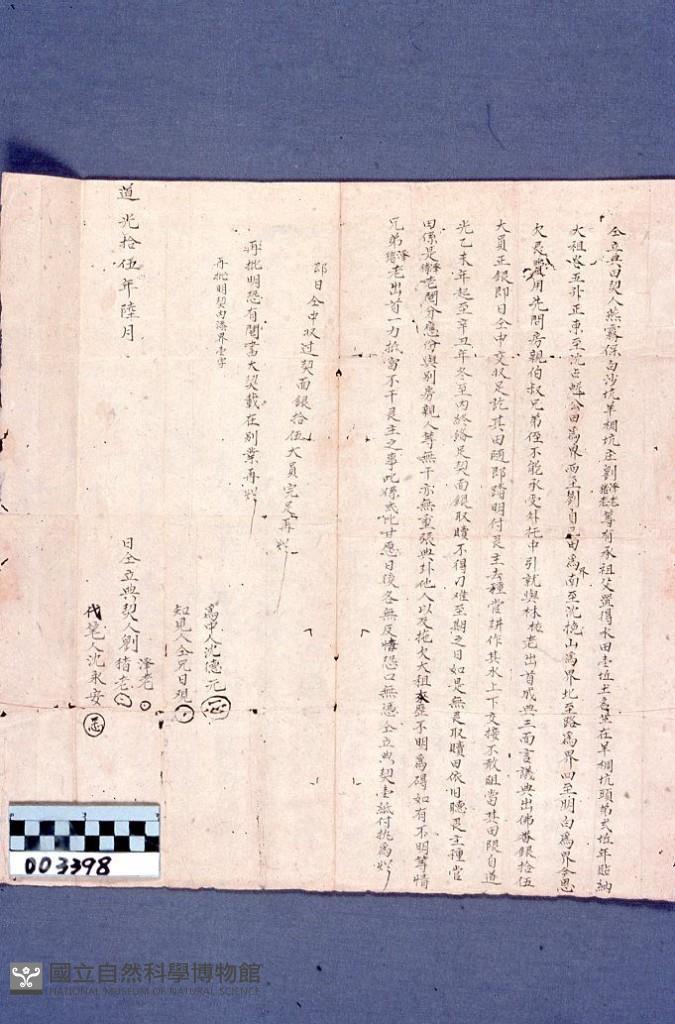 仝立典田契人燕霧保白沙坑羊稠坑庄劉淨老猪老等有承祖父置得水田壹坵土名坐在羊稠坑頭第弍坵年貼納
大租谷五升正東至沈公田為界西至劉自己田為界南至沈山為界北至路為界四至明白為界今因
欠艮費用先問房親伯叔兄弟侄不能承受外托中引就與林老出首承典三面言議典出佛番銀拾伍
大員正銀即日仝中交收足訖其田隨即踏明付艮主去種當耕作其水上下交接不敢阻當其田限自道
光乙未年起至辛丑年冬至內終俻足契面銀取贖不得刁难至期之日如是無艮取贖田依旧聽艮主種當
田係是淨猪老鬮分應份與別房親人等無干亦無重張典卦他人以及拖欠大租來歷不明為碍如有不明等情
兄弟淨猪老出首一力抵當不干艮主之事此係弍比甘愿日後各無反悔恐口無憑仝立典契壹紙付执為炤
即日仝中収过契面銀拾伍大員完足再炤
再批明恐有鬮書大契載在別業再炤
再批明契內添界壹字
為中人沈德元
知見人仝兄日現
道光拾伍年陸月 日仝立典契人劉淨老猪老
代笔人沈永安
003398
國立自然科學博物館
NATIONAL MUSEUM OF NATURAL SCIENCE